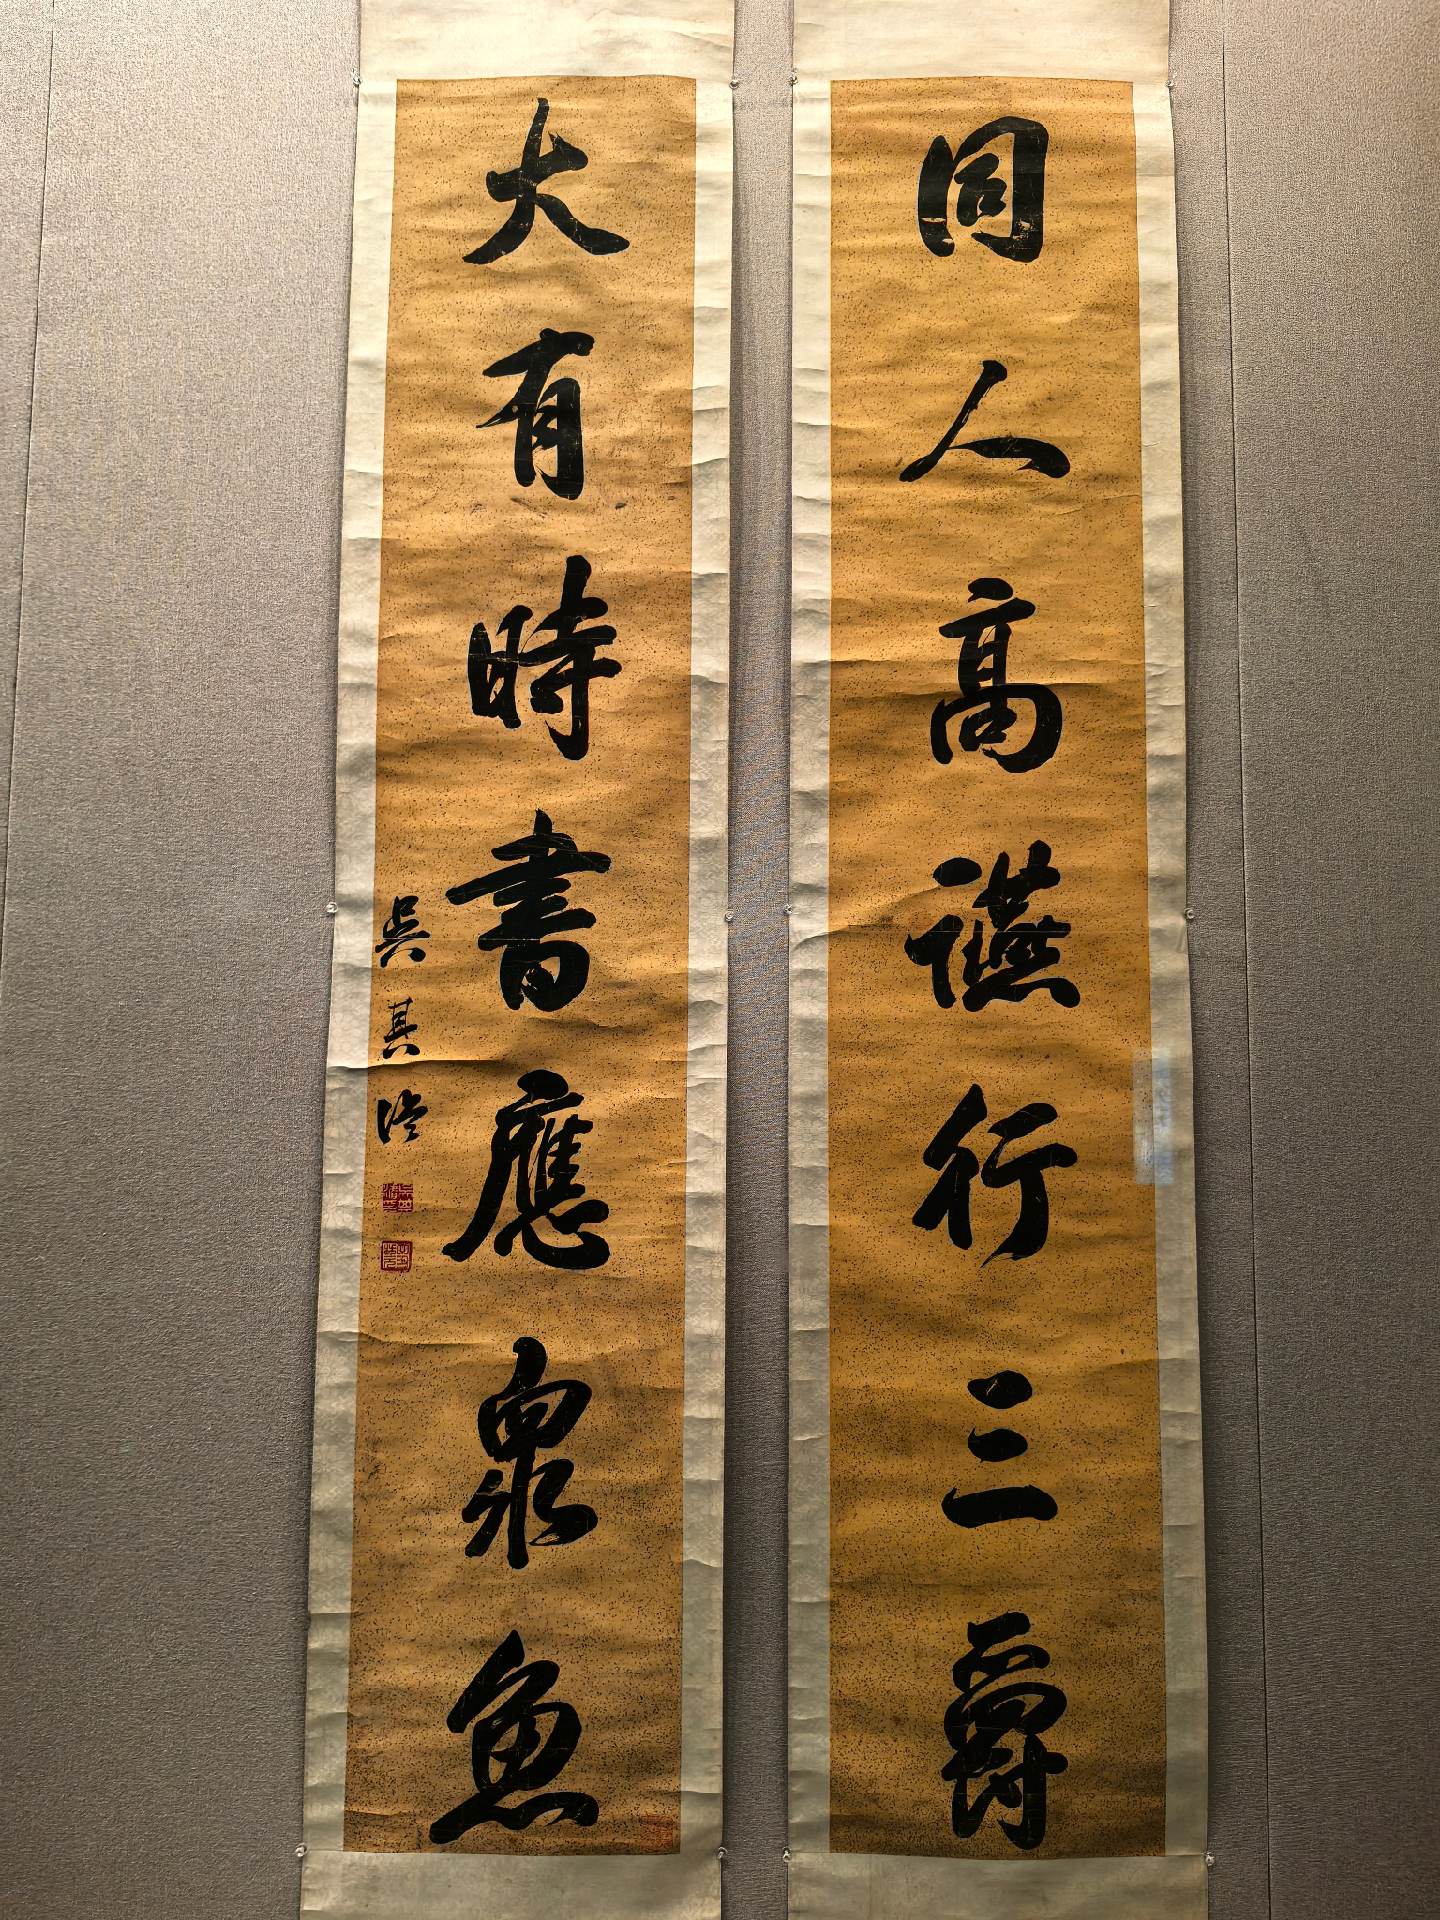 同人高讌行三爵
大有時書應衆魚
吳其濬